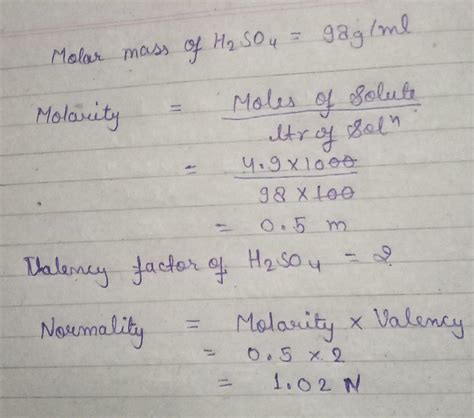 Molar mass of H₂SO₄ = 98g/ml
Molarity = Moles of Solute
ltr of Solⁿ
= 4.9 × 1000
98 × 100
= 0.5 m
Valency factor of H₂SO₄ = 2
Normality = Molarity × Valency
= 0.5 × 2
= 1.02 N